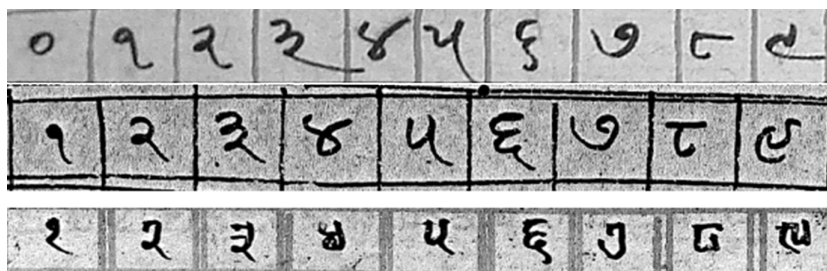 ० १ २ ३ ४ ५ ६ ७ ८ ९
१ २ ३ ४ ५ ६ ७ ८ ९
१ २ ३ ४ ५ ६ ७ ८ ९